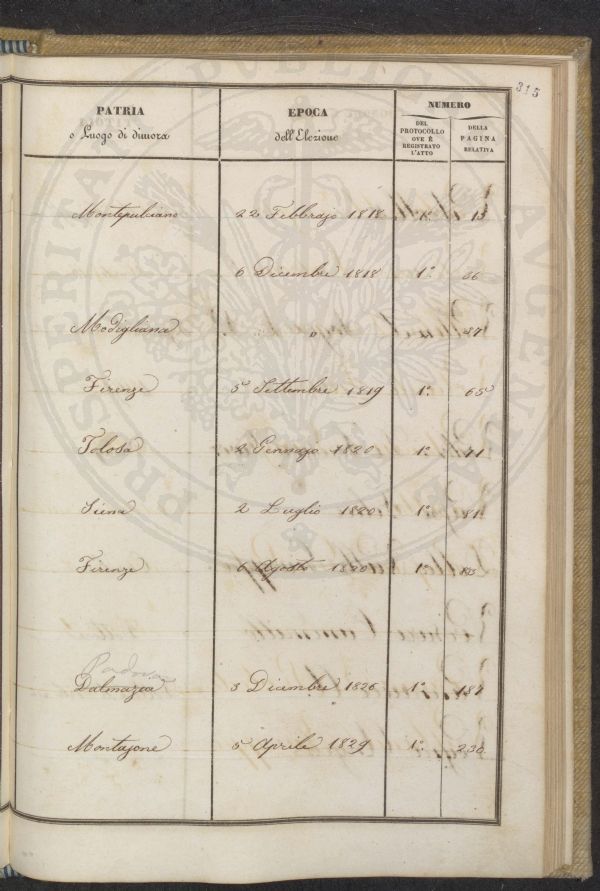 315
PATRIA
o Luogo di dimora
EPOCA
dell'Elezione
NUMERO
DEL
PROTOCOLLO
OVE È
REGISTRATO
L'ATTO
DELLA
PAGINA
RELATIVA
Montepulciano 22 Febbrajo 1818 1º 13
6 Dicembre 1818 1º 36
Modigliana " 37
Firenze 5 Settembre 1819 1º 65
Tolosa 2 Gennajo 1820 1º 71
Siena 2 Luglio 1820 1º 81
Firenze 6 Agosto 1820 1º 85
Padova
Dalmazia 3 Dicembre 1826 1º 187
Montajone 5 Aprile 1829 1º 230
PROSPERITATI PUBLICAE AUGENDAE